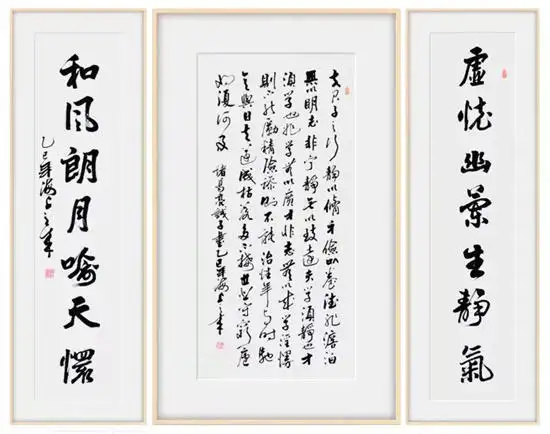 虚懷幽蘭生静氣
夫君子之行静以修身儉以養德非澹泊
無以明志非宁静無以致遠夫学須静也才
須学也非学無以廣才非志無以成学淫慢
則不能勵精險躁則不能治性年与时馳
意與日去遂成枯落多不接世悲守窮廬
将復何及 諸葛亮誡子書乙巳年海上
和風朗月喻天懷
乙巳年海上